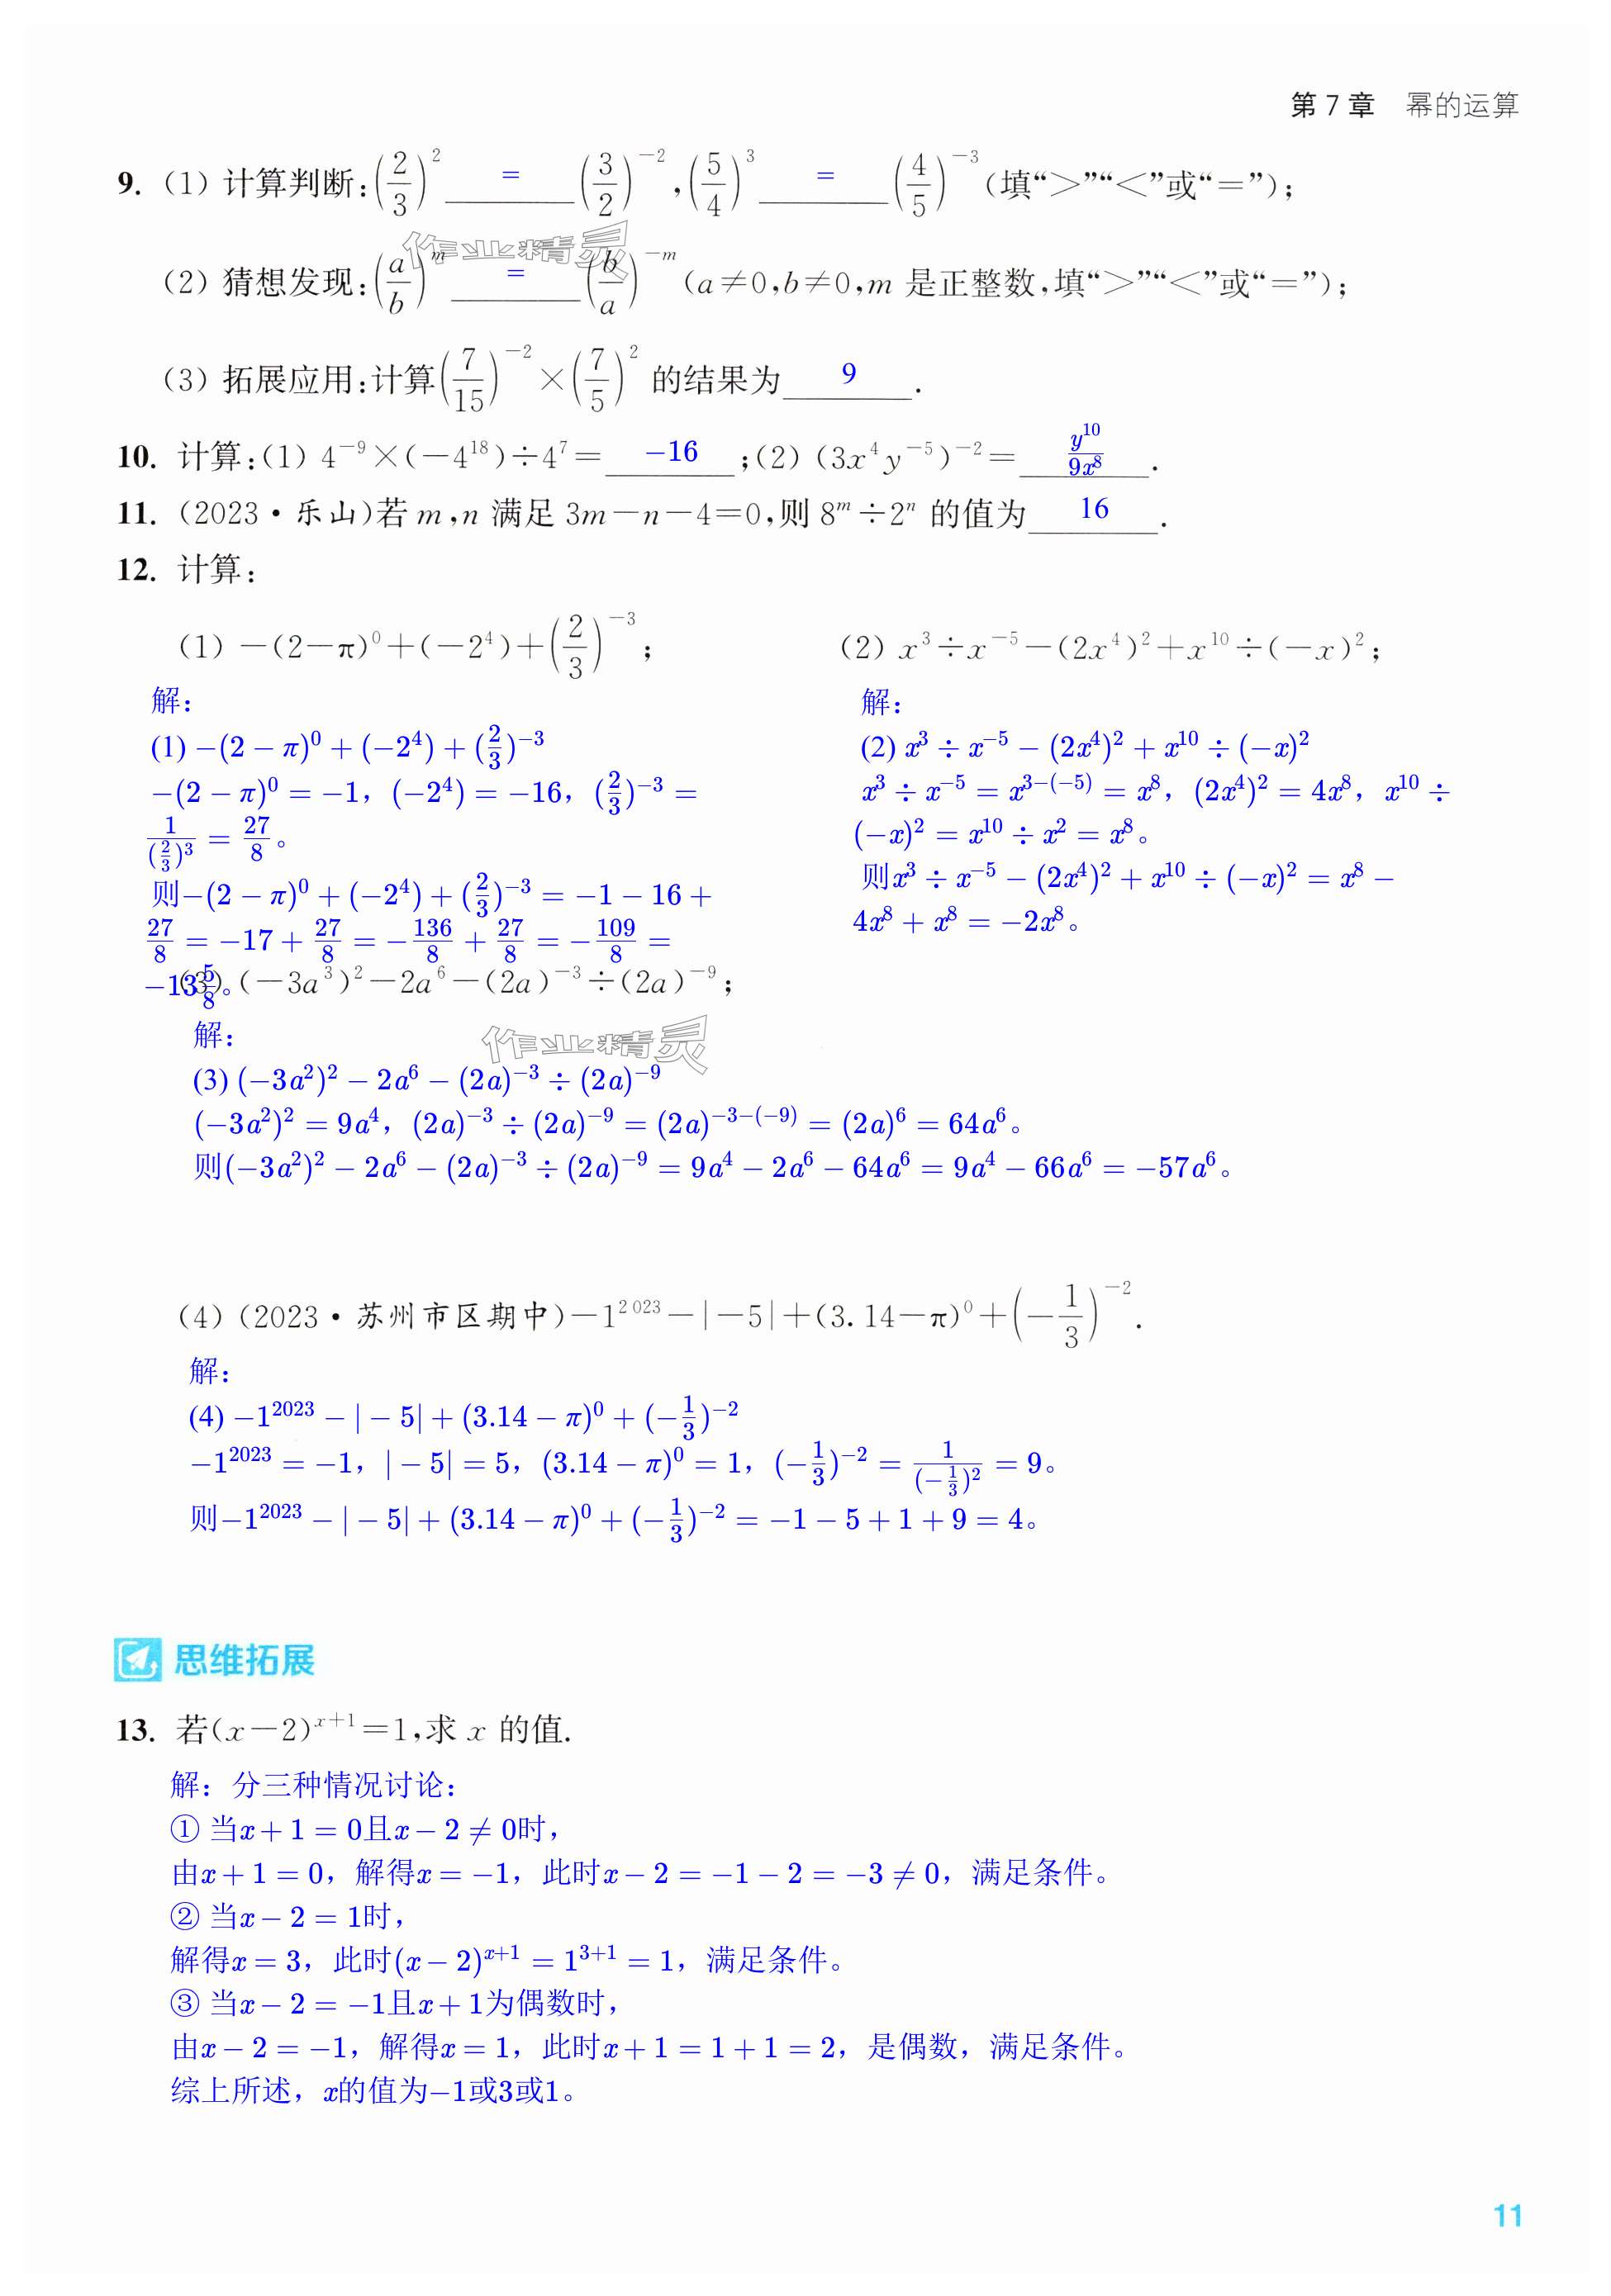 第7章 幂的运算
9. (1) 计算判断:(2/3)^2 = (3/2)^{-2},(5/4)^3 = (4/5)^{-3} (填“>”“<”或“=”);
作业精灵
(2) 猜想发现:(a/b)^m = (b/a)^{-m} (a≠0,b≠0,m 是正整数,填“>”“<”或“=”);
(3) 拓展应用:计算(7/15)^{-2}×(7/5)^2 的结果为 9 .
10. 计算:(1) 4^{-9}×(-4^{18})÷4^7= -16 ;(2) (3x^4y^{-5})^{-2}= y^{10}/9x^8 .
11. (2023·乐山)若 m,n 满足 3m-n-4=0,则 8^m÷2^n 的值为 16 .
12. 计算:
(1) -(2-π)^0+(-2^4)+(2/3)^{-3};
(2) x^3÷x^{-5}-(2x^4)^2+x^{10}÷(-x)^2;
解:
(1) -(2-π)^0+(-2^4)+(2/3)^{-3}
-(2-π)^0=-1,(-2^4)=-16,(2/3)^{-3}=
1/(2/3)^3=27/8。
则-(2-π)^0+(-2^4)+(2/3)^{-3}=-1-16+
27/8=-17+27/8=-136/8+27/8=-109/8=
-13 5/8。
解:
(2) x^3÷x^{-5}-(2x^4)^2+x^{10}÷(-x)^2
x^3÷x^{-5}=x^{3-(-5)}=x^8,(2x^4)^2=4x^8,x^{10}÷
(-x)^2=x^{10}÷x^2=x^8。
则x^3÷x^{-5}-(2x^4)^2+x^{10}÷(-x)^2=x^8-
4x^8+x^8=-2x^8。
(3) (-3a^3)^2-2a^6-(2a)^{-3}÷(2a)^{-9};
作业精灵
解:
(3) (-3a^2)^2-2a^6-(2a)^{-3}÷(2a)^{-9}
(-3a^2)^2=9a^4,(2a)^{-3}÷(2a)^{-9}=(2a)^{-3-(-9)}=(2a)^6=64a^6。
则(-3a^2)^2-2a^6-(2a)^{-3}÷(2a)^{-9}=9a^4-2a^6-64a^6=9a^4-66a^6=-57a^6。
(4) (2023·苏州市区期中)-1^{2023}-|-5|+(3.14-π)^0+(-1/3)^{-2}.
解:
(4) -1^{2023}-|-5|+(3.14-π)^0+(-1/3)^{-2}
-1^{2023}=-1,|-5|=5,(3.14-π)^0=1,(-1/3)^{-2}=1/(-1/3)^2=9。
则-1^{2023}-|-5|+(3.14-π)^0+(-1/3)^{-2}=-1-5+1+9=4。
思维拓展
13. 若(x-2)^{x+1}=1,求 x 的值.
解:分三种情况讨论:
① 当x+1=0且x-2≠0时,
由x+1=0,解得x=-1,此时x-2=-1-2=-3≠0,满足条件。
② 当x-2=1时,
解得x=3,此时(x-2)^{x+1}=1^{3+1}=1,满足条件。
③ 当x-2=-1且x+1为偶数时,
由x-2=-1,解得x=1,此时x+1=1+1=2,是偶数,满足条件。
综上所述,x的值为-1或3或1。
11